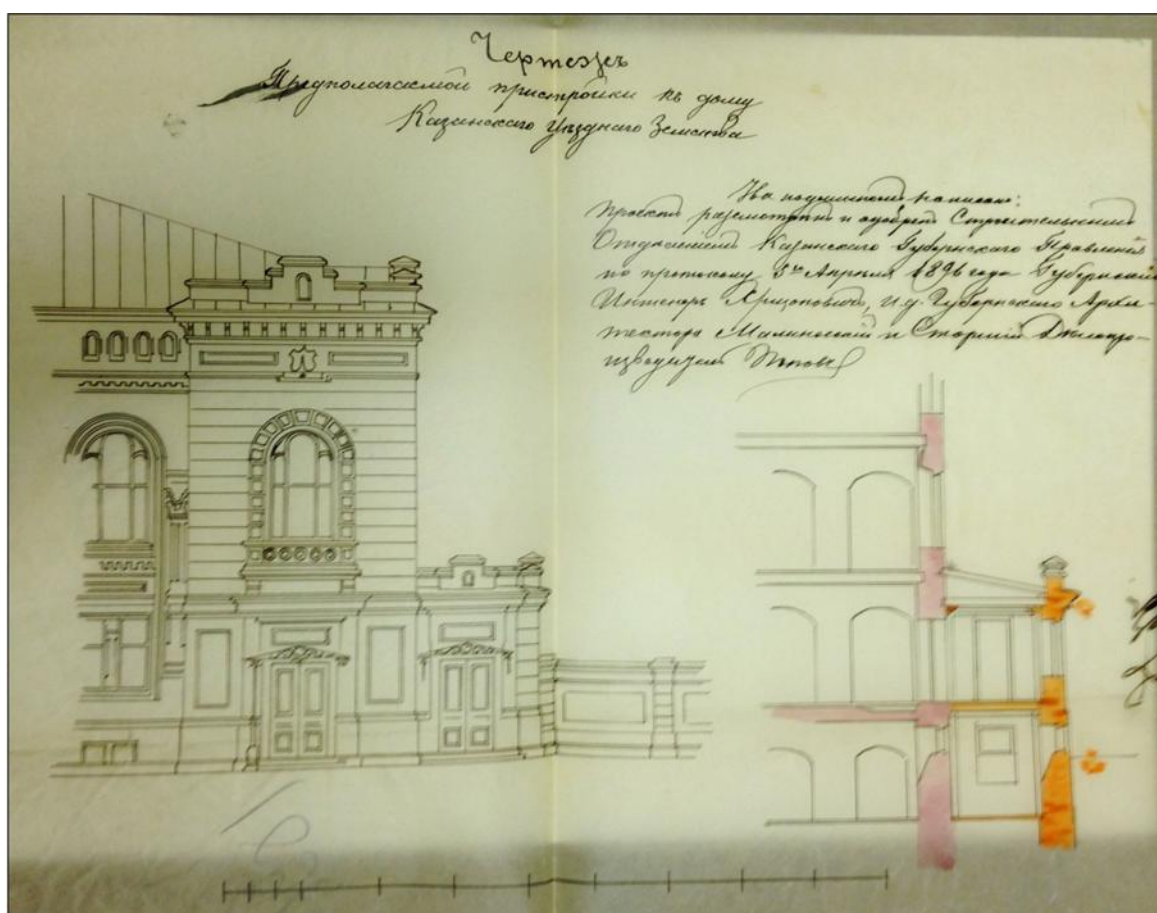 Чертежъ
Предполагаемой пристройки къ дому
Казанскаго Уѣзднаго Земства
На подлинномъ написано:
Проектъ разсмотрѣнъ и одобренъ Строительнымъ
Отдѣленіемъ Казанскаго Губернскаго Правленія
по протоколу 3го Апрѣля 1896 года Губернскій
Инженеръ Хрщоновичъ, и.д. Губернскаго Архи-
тектора Малиновскій и Старшій Дѣлопро-
изводитель